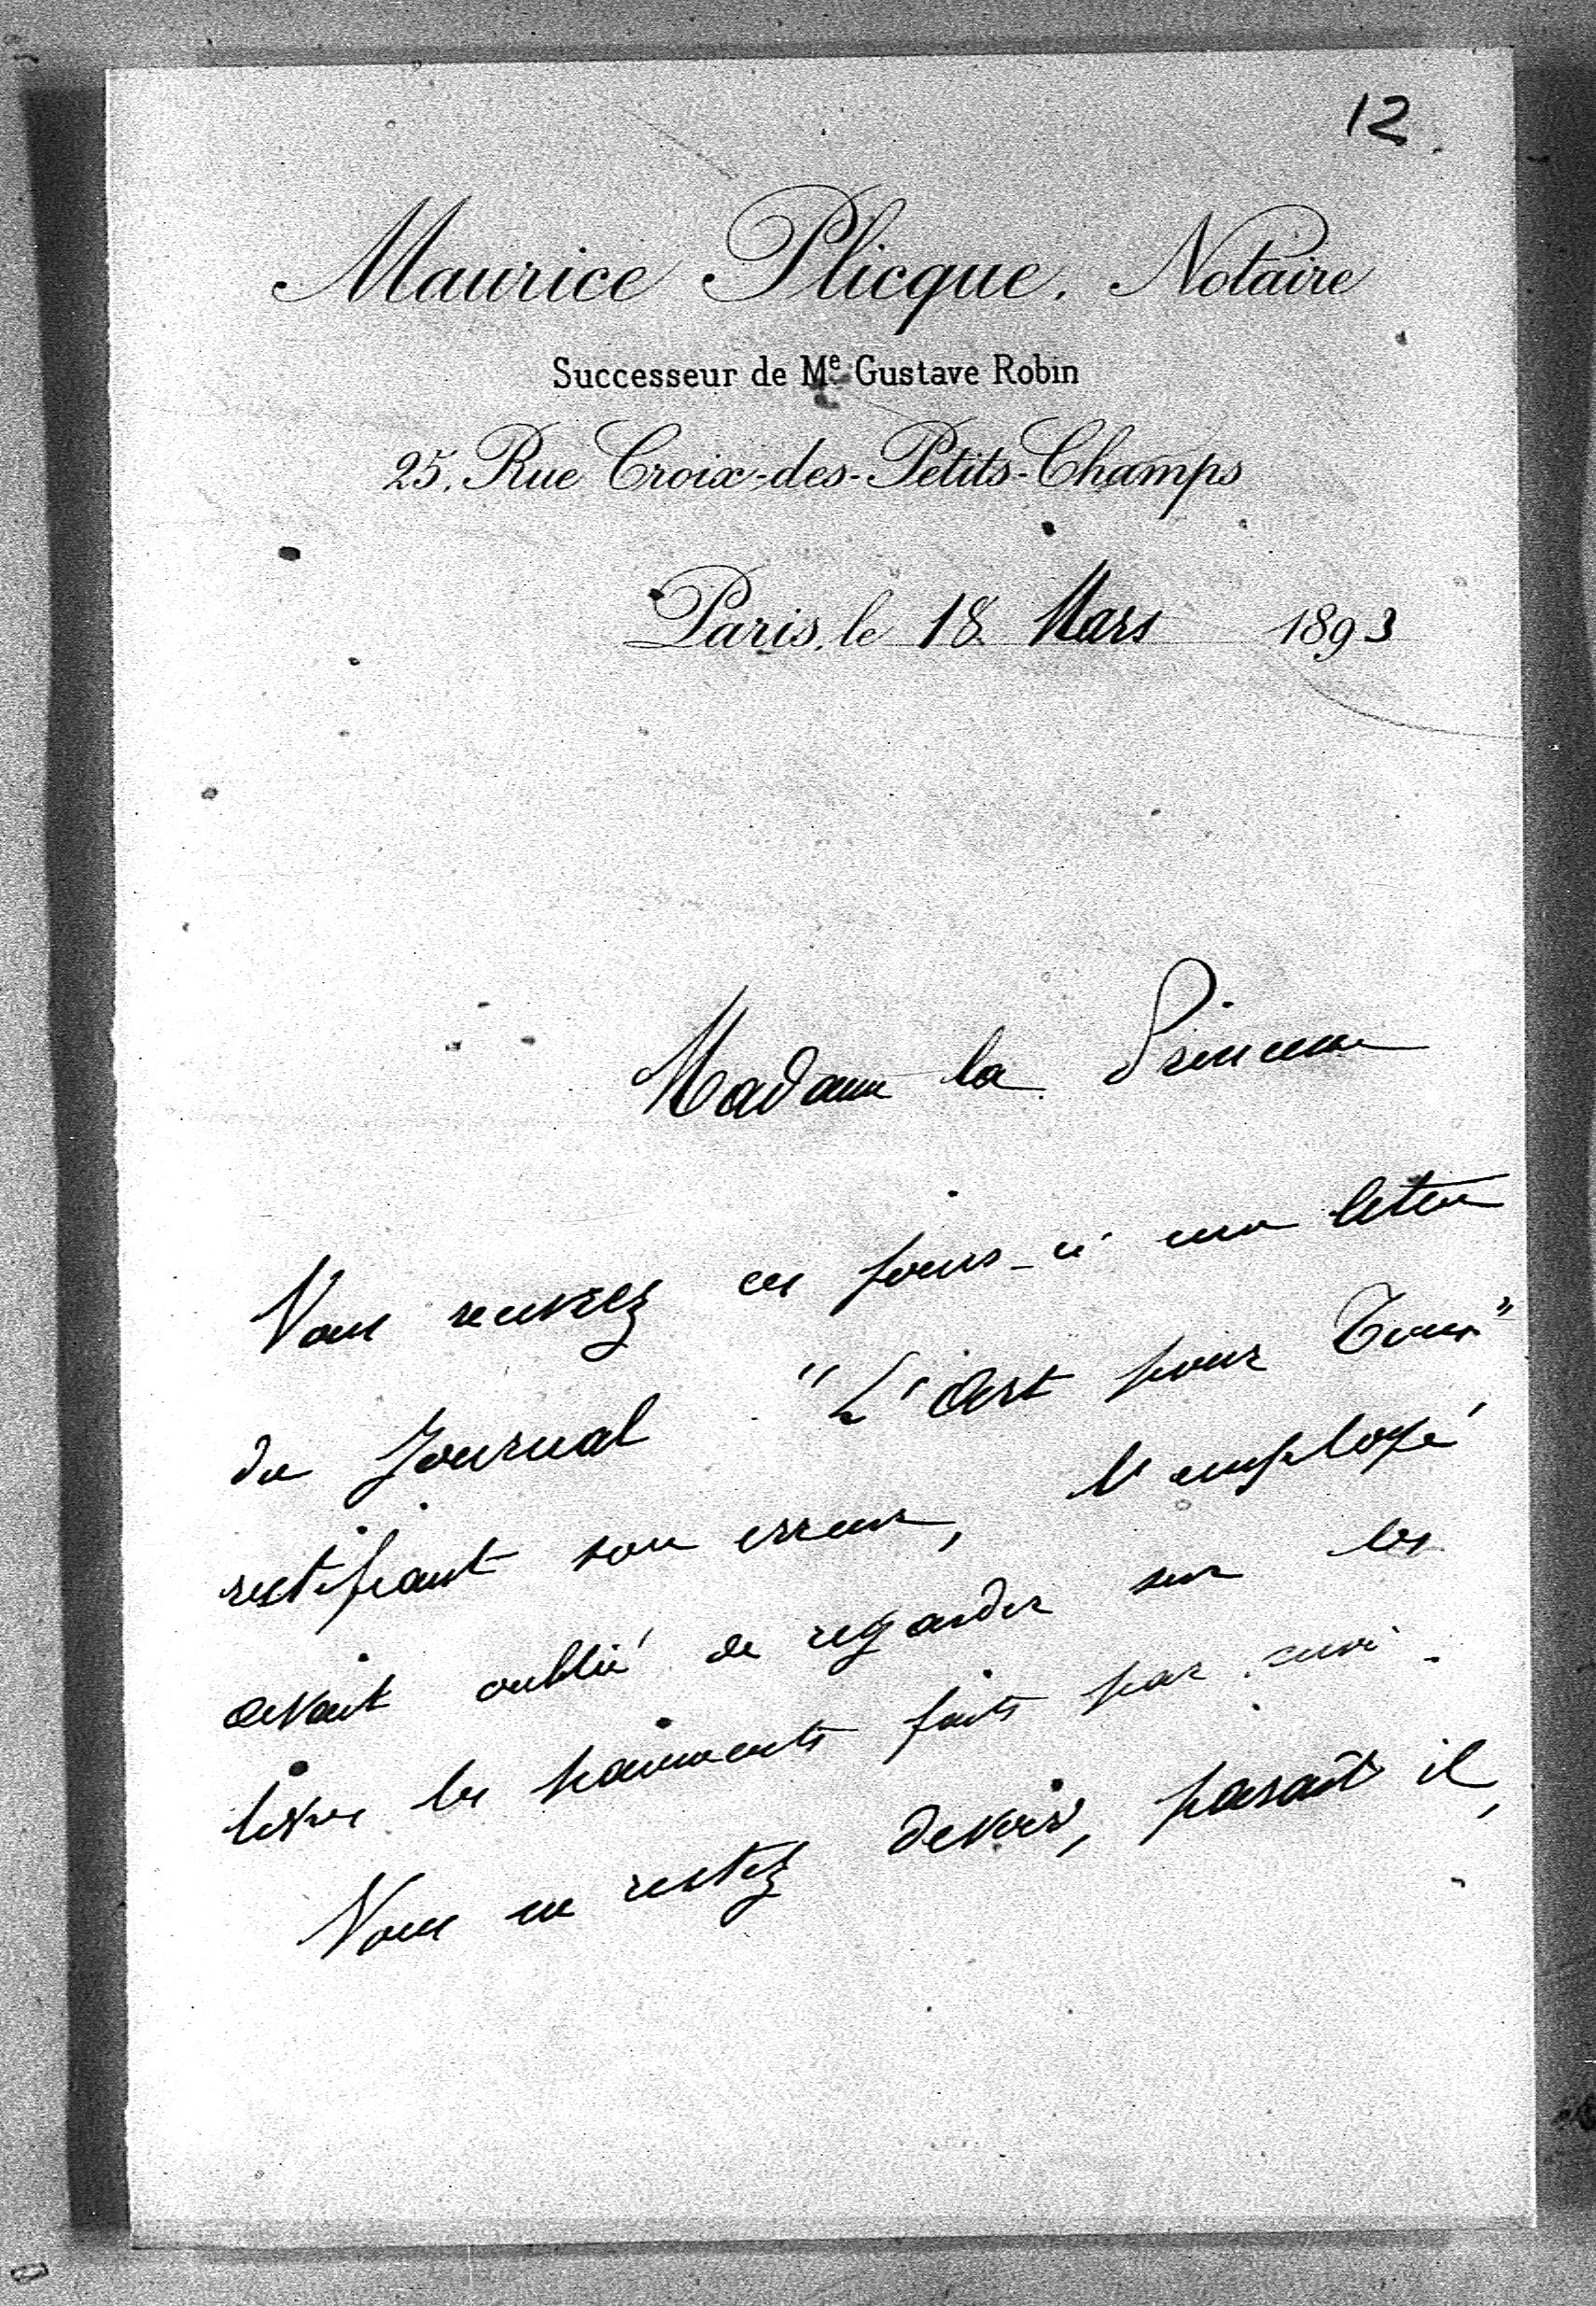 12
Maurice Plicque, Notaire
Successeur de Me Gustave Robin
25, Rue Croix-des-Petits-Champs
Paris, le 18 Mars 1893
Madame la Princesse
Vous recevrez ces jours-ci une lettre
du Journal "L'Art pour Tous"
rectifiant son erreur, l'employé
avait oublié de regarder sur les
livres les paiements faits par moi.
Vous ne restez devoir, paraît il,